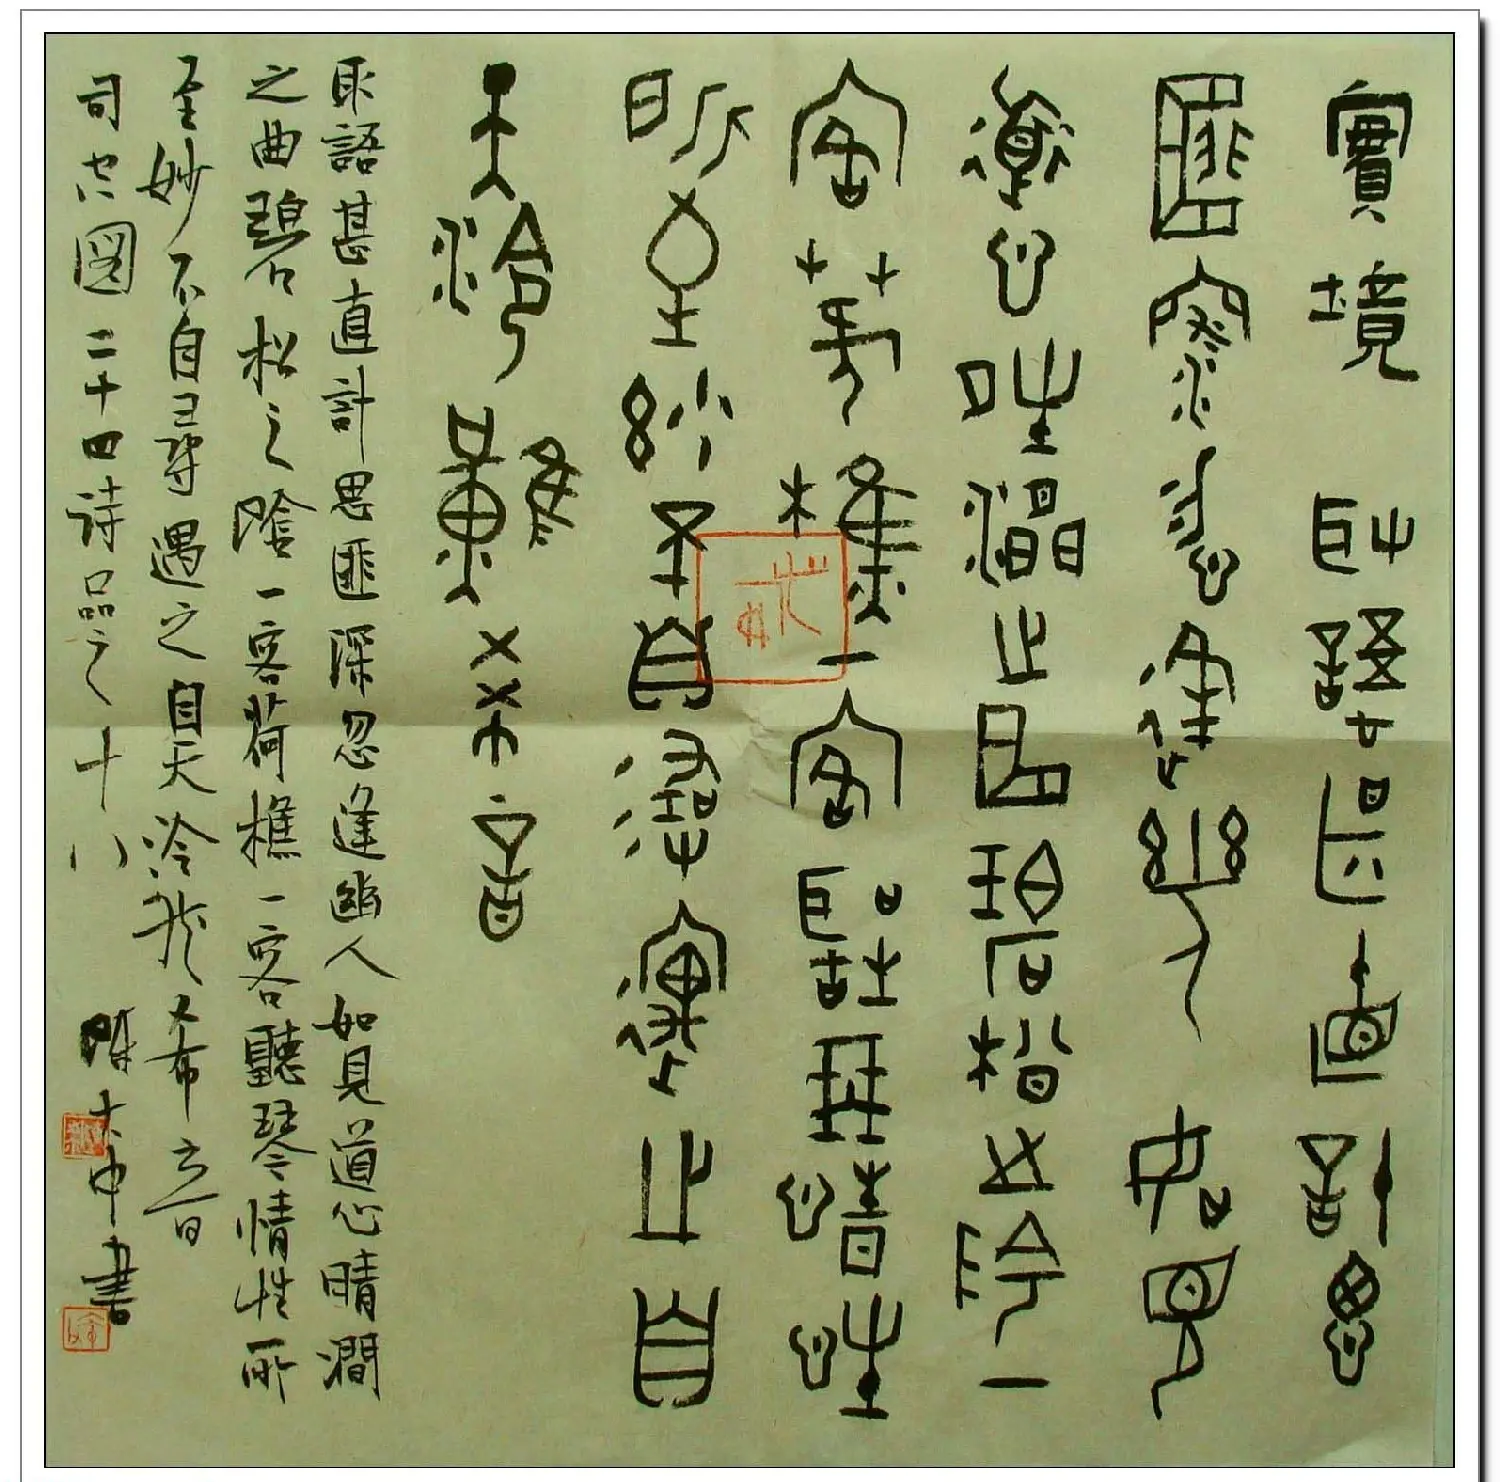 實境 取語甚直計思
匪深忽逢幽人如見
道心晴澗之曲碧松之陰一
客荷樵一客聽琴情性
所至妙不自尋遇之自
天泠然希音
取語甚直計思匪深忽逢幽人如見道心晴澗
之曲碧松之陰一客荷樵一客聽琴情性所
至妙不自尋遇之自天泠然希音
司空圖二十四詩品之十八 陳大中書